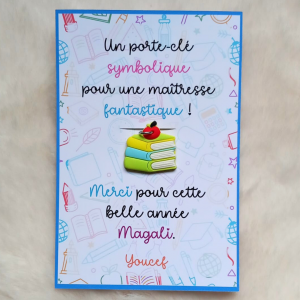 Un porte-clé
symbolique
pour une maîtresse
fantastique !
Merci pour cette
belle année
Magali.
Youcef